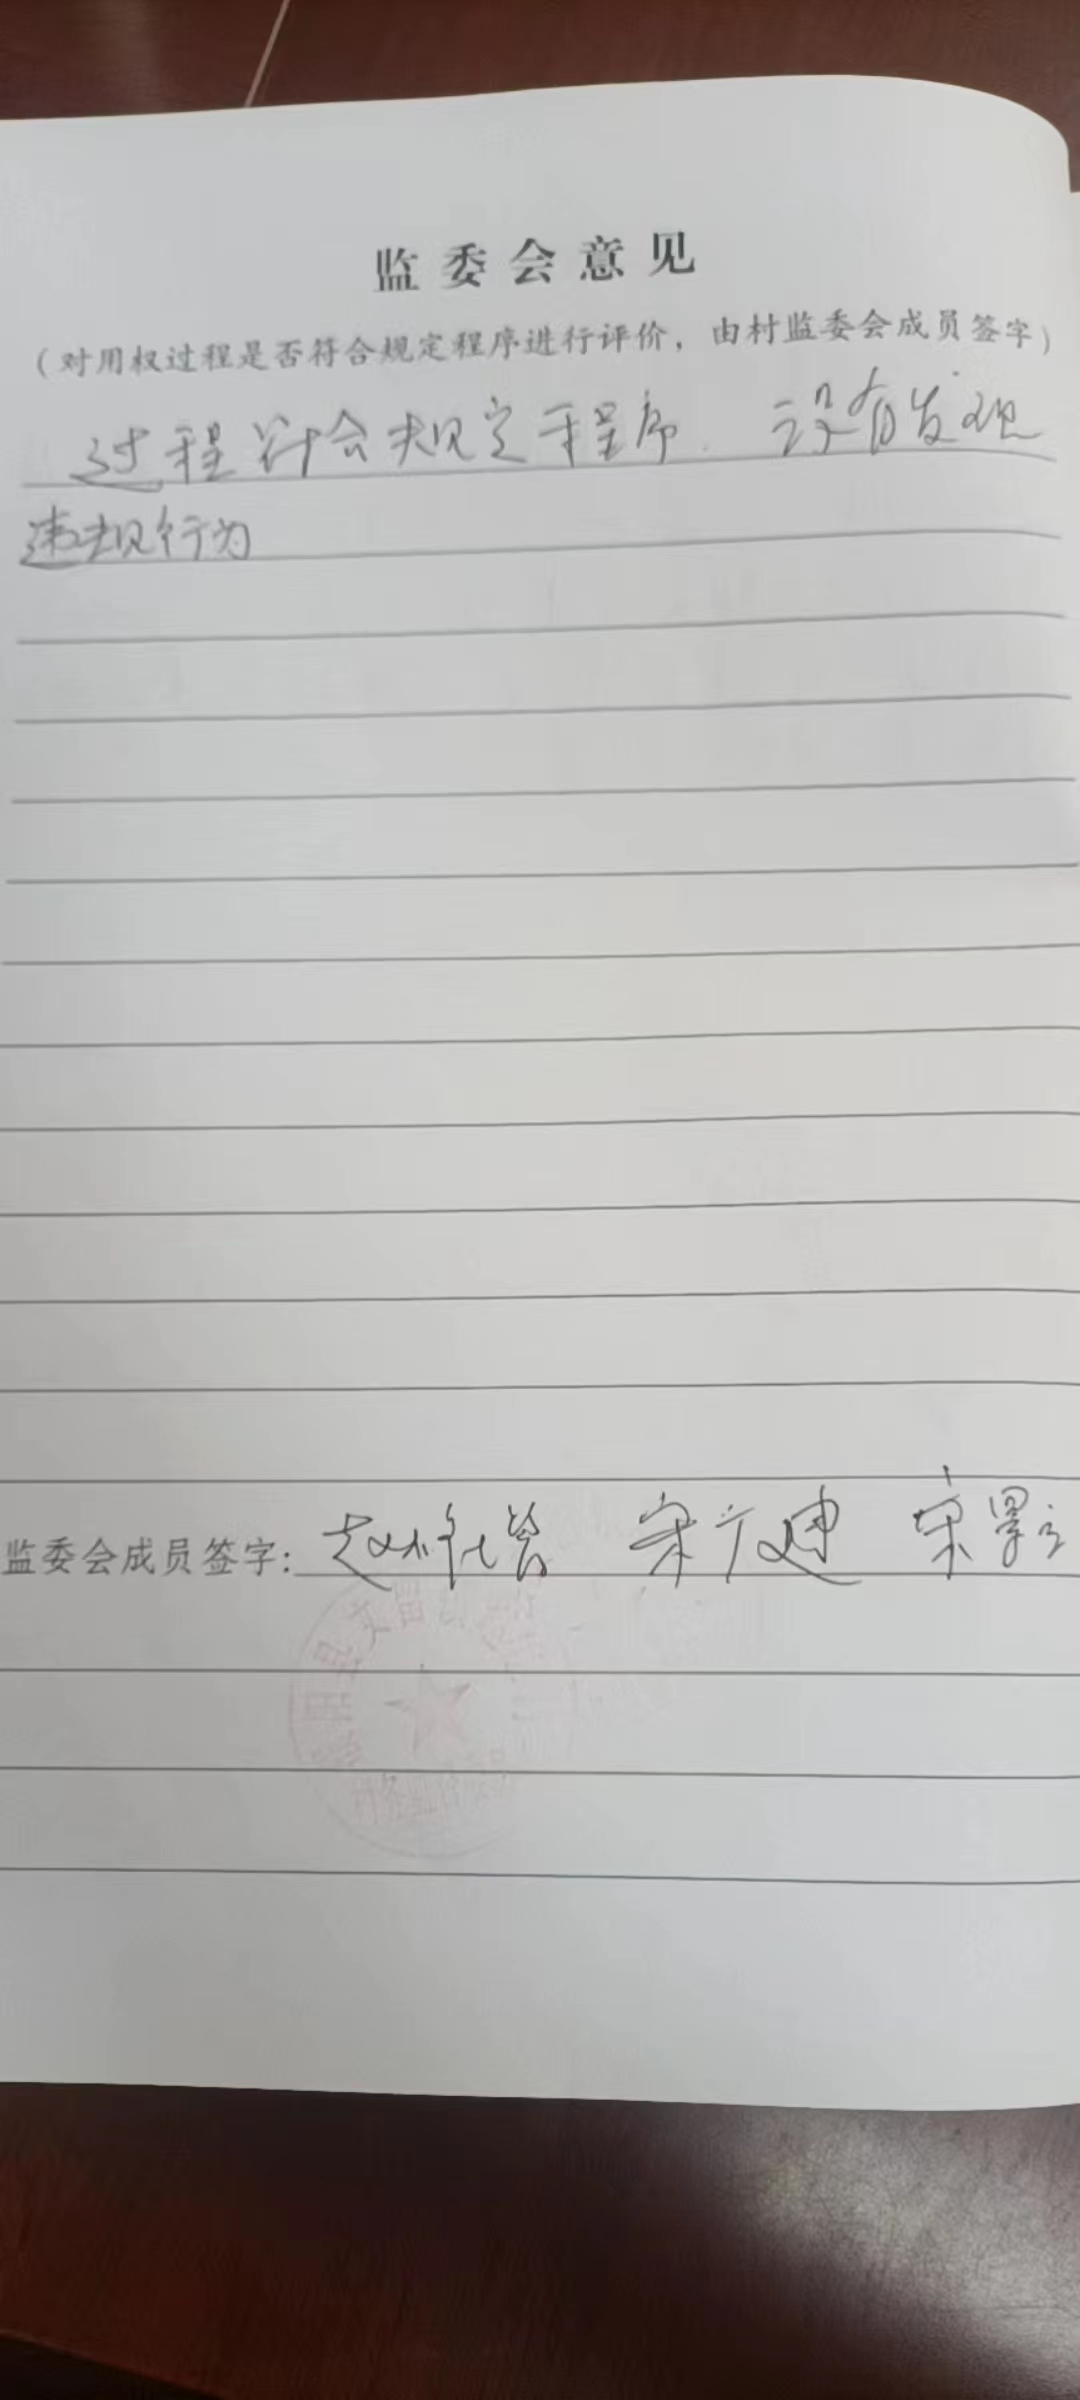 监委会意见
（对用权过程是否符合规定程序进行评价，由村监委会成员签字）
过程符合规定程序．没有发现
违规行为
监委会成员签字：赵 宋广建 宋
县
村务监督